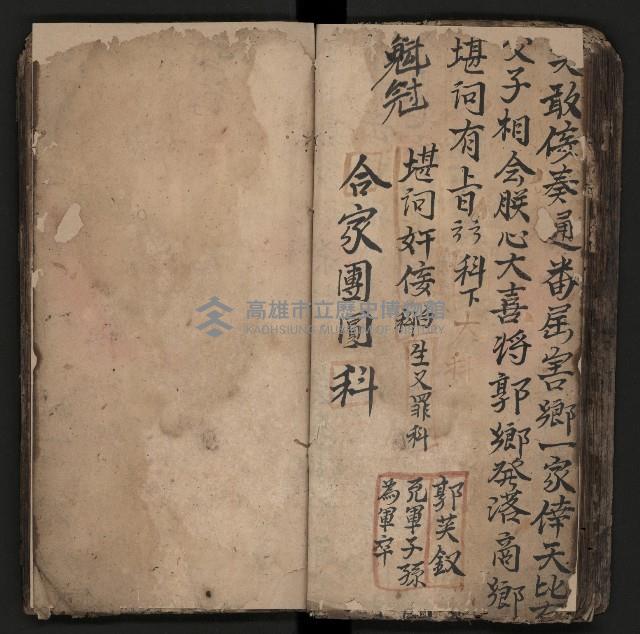 敢侫奏通番屈害鄉一家倖天比
父子相会朕心大喜将郭鄉発落高鄉
堪问有上旨云云科下
魁㓂
堪词奸侫
生又罪科
合家團圓科
郭英釵
免軍子孫
為軍牢
高雄市立歷史博物館
KAOHSIUNG MUSEUM OF HISTORY